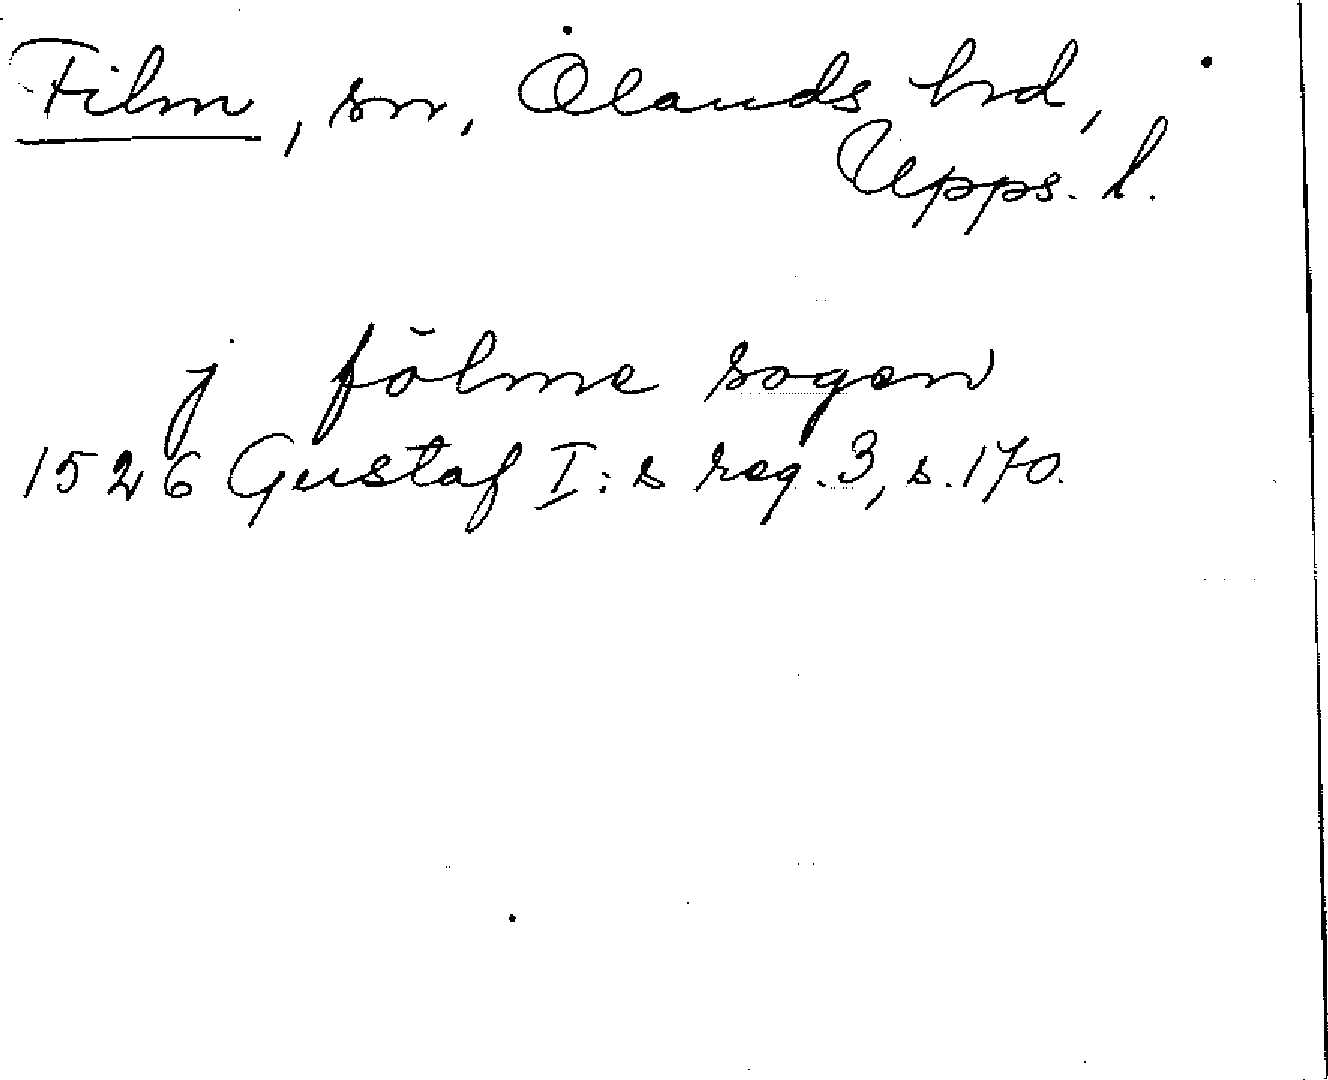 Film, sn, Ölands hrd,
Upps. l.
j fölme sogen
1526 Gustaf I:s reg. 3, s. 170.